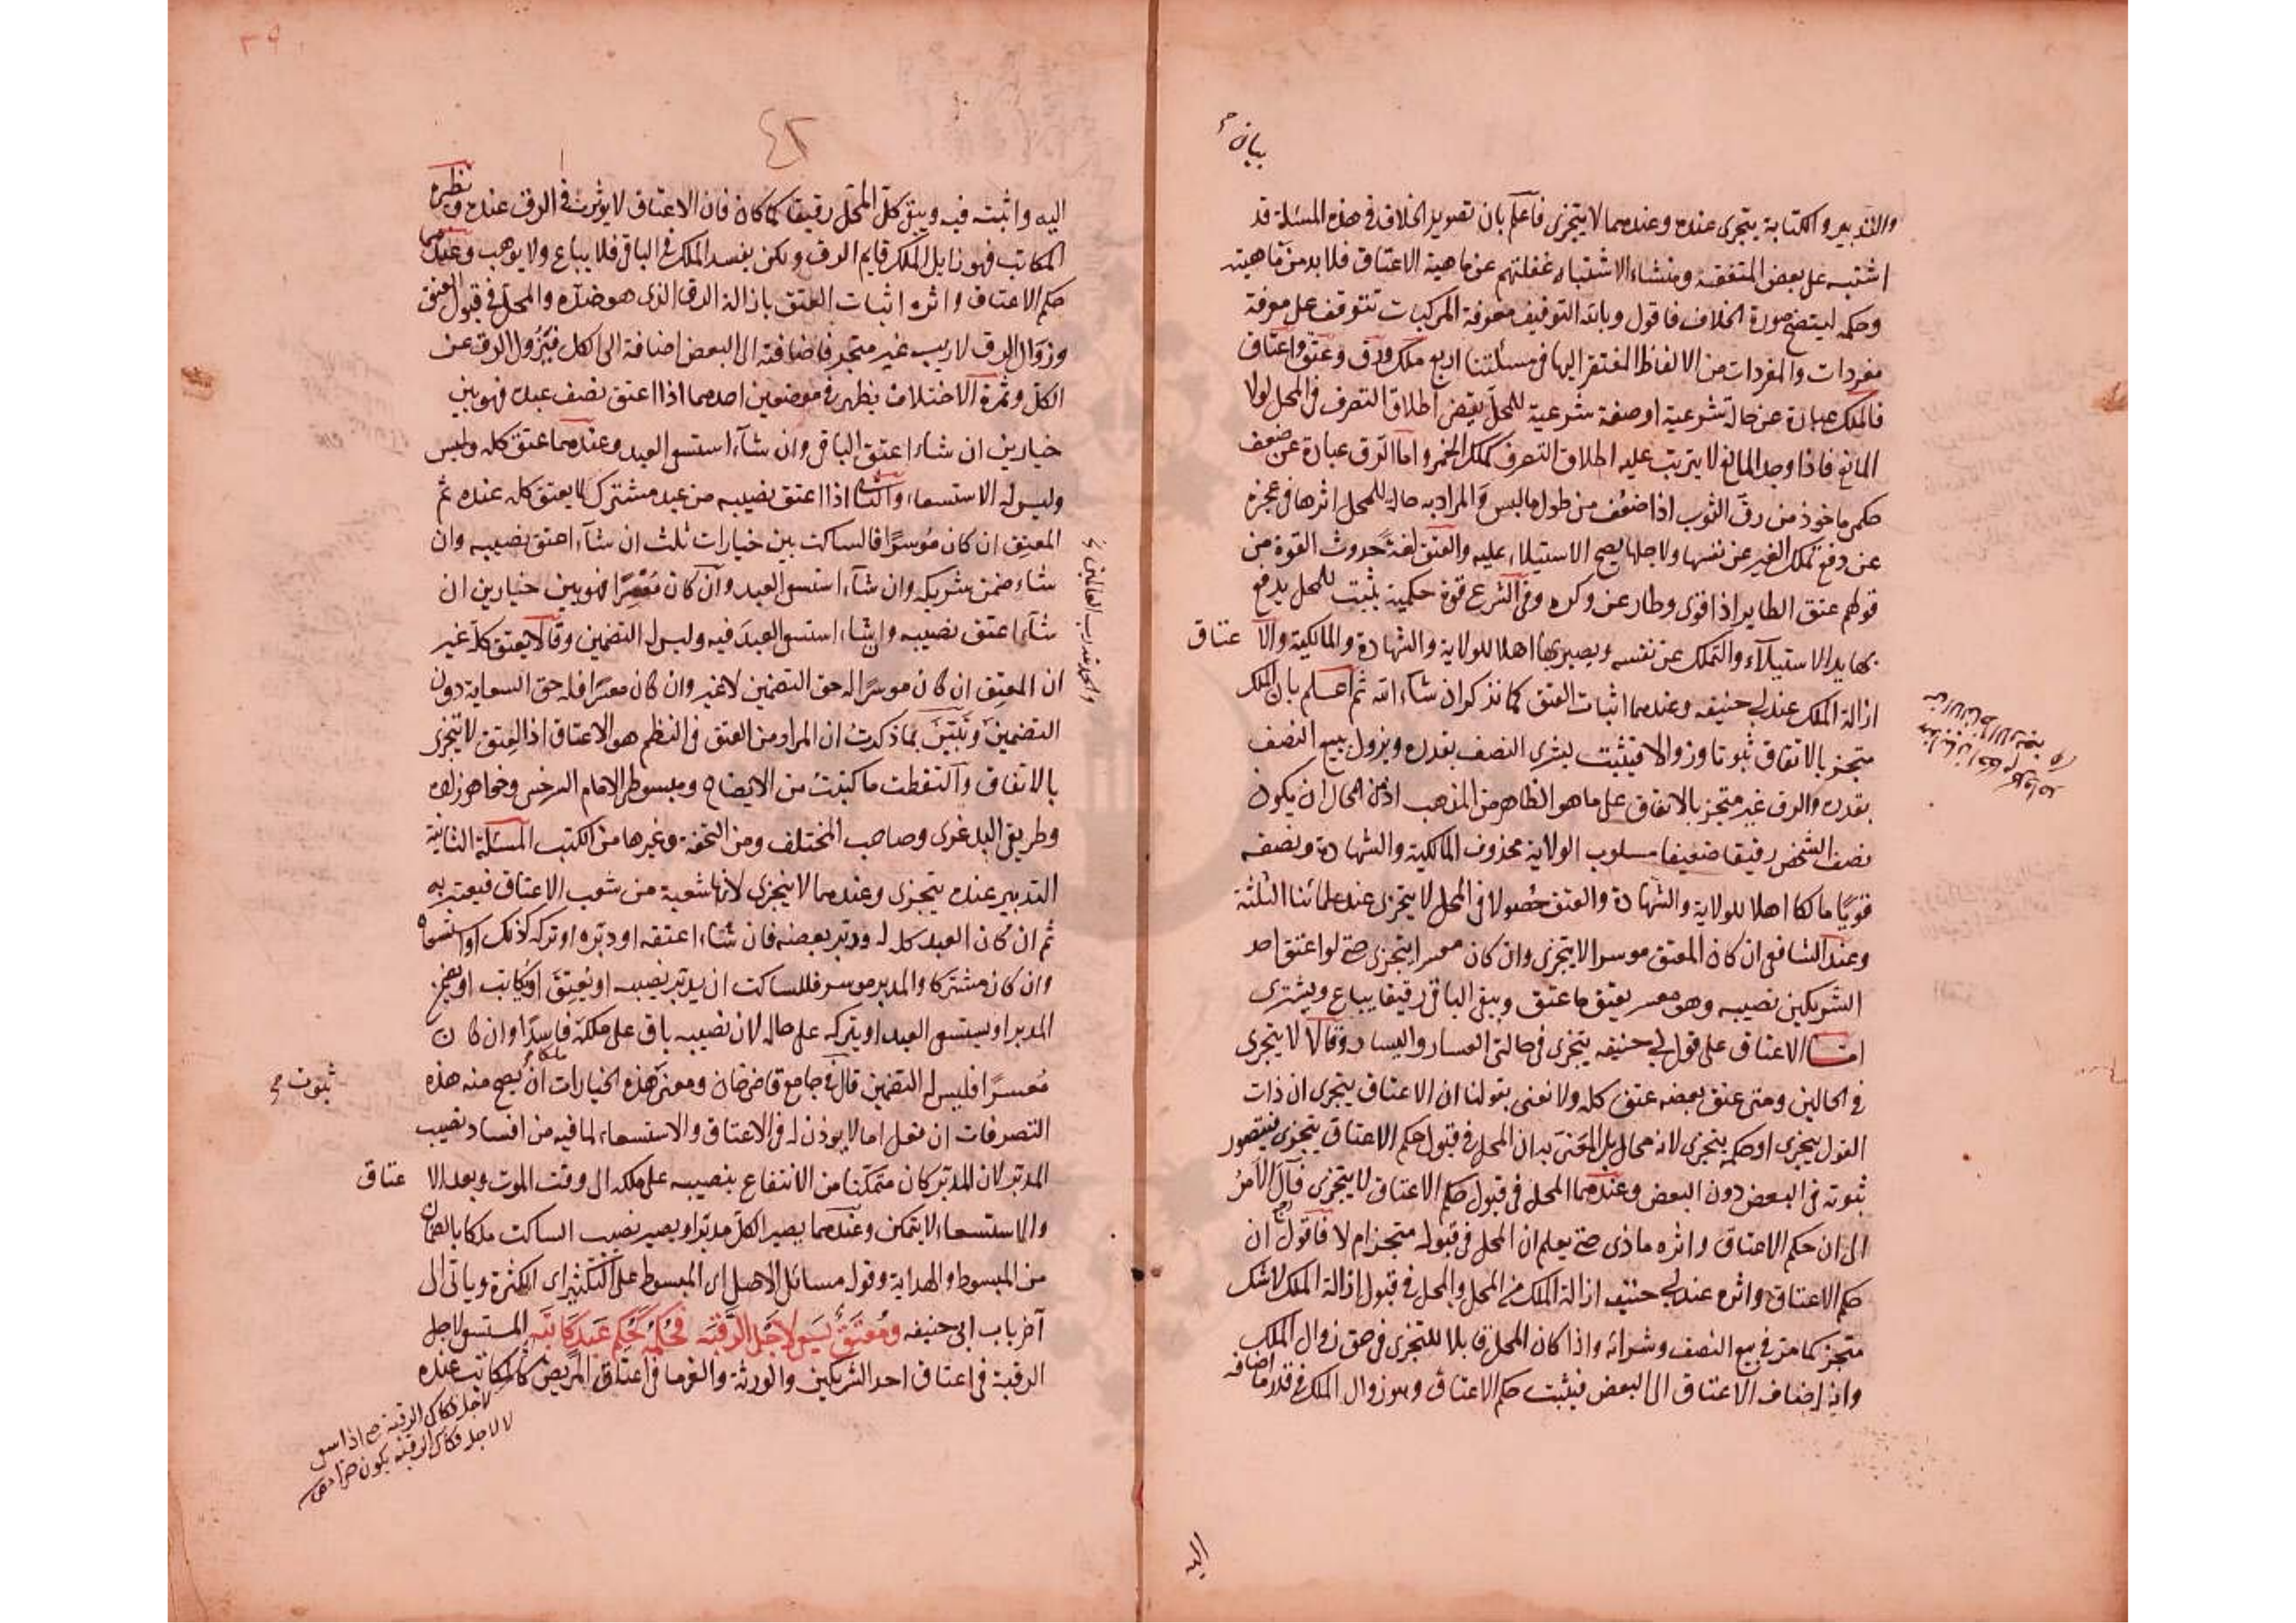 بيان
والتدبير والكتابة يتجزى عنده وعندهما لا يتجزى فاعلم بان تصوير الخلاف في هذه المسئلة قد
اشتبه على بعض المتفقهة ومنشاء الاشتباه غفلتهم عن ماهية الاعتاق فلا بد من ماهيته
وحكمه ليتضح صورة الخلاف فاقول وبالله التوفيق معرفة المركبات تتوقف على معرفة
مفردات والمفردات من الالفاظ المفتقر اليها في مسئلتنا اربع ملك ورق وعتق واعتاق
فالملك عبارة عن حالة شرعية او صفة شرعية للمحل يقتضي اطلاق التصرف في المحل لولا
المانع فاذا وجد المانع لا يترتب عليه اطلاق التصرف كملك الخمر واما الرق عبارة عن ضعف
حكمى ماخوذ من رق الثوب اذا ضعف من طول ما لبس والمراد به حالة للمحل اثرها في عجزه
عن دفع تملك الغير عن نفسها ولاجلها يصح الاستيلاء عليه والعتق لغة حدوث القوة من
قولهم عتق الطاير اذا قوى وطار عن وكره وفي الشرع قوة حكمية يثبت للمحل يدفع
بها يد الاستيلاء والتملك عن نفسه ويصير بها اهلا للولاية والشهادة والمالكية والا عتاق
ازالة الملك عند ابي حنيفه وعندهما اثبات العتق كما نذكر ان شاء الله ثم اعلم بان الملك
متجز بالاتفاق ثبوتا وزوالا فيثبت بشرى النصف بقدره ويزول ببيع النصف
بقدره والرق غير متجز بالاتفاق على ما هو الظاهر من المذهب اذ من المحال ان يكون
نصف الشخص رقيقا ضعيفا مسلوب الولاية محذوف المالكية والشهادة ونصفه
قويا مالكا اهلا للولاية والشهادة والعتق حصولا في المحل لا يتجزى عند علمائنا الثلثة
وعند الشافعى ان كان المعتق موسرا لا يتجزى وان كان معسرا يتجزى حتى لو اعتق احد
الشريكين نصيبه وهو معسر يعتق ما عتق وبقى الباقى رقيقا يباع ويشترى
امـــا الاعتاق على قول ابي حنيفه يتجزى في حالتى العسار واليسار وقالا لا يتجزى
في الحالين ومتى عتق بعضه عتق كله ولا نعنى بقولنا ان الاعتاق يتجزى ان ذات
القول يتجزى او حكمه يتجزى لانه محال بل المعنى به ان المحل في قبول حكم الاعتاق يتجزى فيتصور
ثبوته في البعض دون البعض وعندهما المحل في قبول حكم الاعتاق لا يتجزى فآل الامر
الى ان حكم الاعتاق واثره ماذى حتى يعلم ان المحل في قبوله متجز ام لا فاقول ان
حكم الاعتاق واثره عند ابي حنيفه ازالة الملك في المحل والمحل في قبول ازالة الملك لا شك
متجز كما مر في بيع النصف وشرائه واذا كان المحل قابلا للتجزى في حق زوال الملك
وانه اضاف الاعتاق الى البعض فيثبت حكم الاعتاق وهو زوال الملك في قدر ما اضافه
اليه
٤٢
اليه واثبته فيه ويبقى كل المحل رقيقا كما كان فان الاعتاق لا يؤثر في الرق عنده ونظيره
المكاتب فهو زايل الملك قايم الرق ولكن يفسد الملك في الباقى فلا يباع ولا يوهب وعندهما
حكم الاعتاق واثره اثبات العتق بازالة الرق الذى هو ضده والمحل في قبول العتق
وزوال الرق لا ريب غير متجز فاضافته الى البعض اضافة الى الكل فيزول الرق عن
الكل وثمرة الاختلاف يظهر في موضعين احدهما اذا اعتق نصف عبده فهو بين
خيارين ان شاء اعتق الباقى وان شاء استسعى العبد وعندهما عتق كله وليس
وليس له الاستسعاء والثانى اذا اعتق نصيبه من عبد مشترك لا يعتق كله عنده ثم
المعتق ان كان موسرا فالساكت بين خيارات ثلث ان شاء اعتق نصيبه وان
شاء ضمن شريكه وان شاء استسعى العبد وان كان معسرا فهو بين خيارين ان
شاء اعتق نصيبه وان شاء استسعى العبد فيه وليس له التضمين وقالا يعتق كله غير
ان المعتق ان كان موسرا له حق التضمين لا غير وان كان معسرا فله حق السعاية دون
التضمين وتبين بما ذكرت ان المراد من العتق في النظم هو الاعتاق اذ العتق لا يتجزى
بالاتفاق والتقطت ما كتبت من الايضاح ومبسوط الامام السرخسى وخواهر زاده
وطريقى البلدغرى وصاحب المختلف ومن التحفة وغيرها من الكتب المسئلة الثانية
التدبير عنده يتجزى وعندهما لا يتجزى لانها شعبة من شعب الاعتاق فيعتبر به
ثم ان كان العبد كله له ودبر بعضه فان شاء اعتقه او دبره او تركه كذلك او استسعاه
وان كان مشتركا والمدبر موسر فللساكت ان يدبر نصيبه او يعتق او يكاتب او يضمن
المدبر او يستسعى العبد او يتركه على حاله لان نصيبه باق على ملكه فاسدا وان كان
معسرا فليس له التضمين قال في جامع قاضى خان ومعنى هذه الخيارات ان يصح منه هذه
التصرفات ان فعل اما لا يوذن له في الاعتاق والاستسعاء لما فيه من افساد نصيب
المدبر لان المدبر كان متمكنا من الانتفاع بنصيبه على ملكه الى وقت الموت وبعد الا عتاق
والاستسعاء لا يتمكن وعندهما يصير الكل مدبرا ويصير نصيب الساكت ملكا بالضمان
من المبسوط والهداية وقوله مسائل الاصل اى المبسوط على التكثير اى الكثرة وياتى الى
آخر باب ابى حنيفه ومعتق يسعى لاجل الرقبه فحكمه حكم عبد كاتبه المستسعى لاجل
الرقبة في اعتاق احد الشريكين والورثة والغرما في اعتاق المريض كالمكاتب عنده
والحمد لله رب العالمين
ثبوت
لاجل فكاك الرقبة صح اذا سعى
لا لاجل فكاك الرقبة يكون حرا